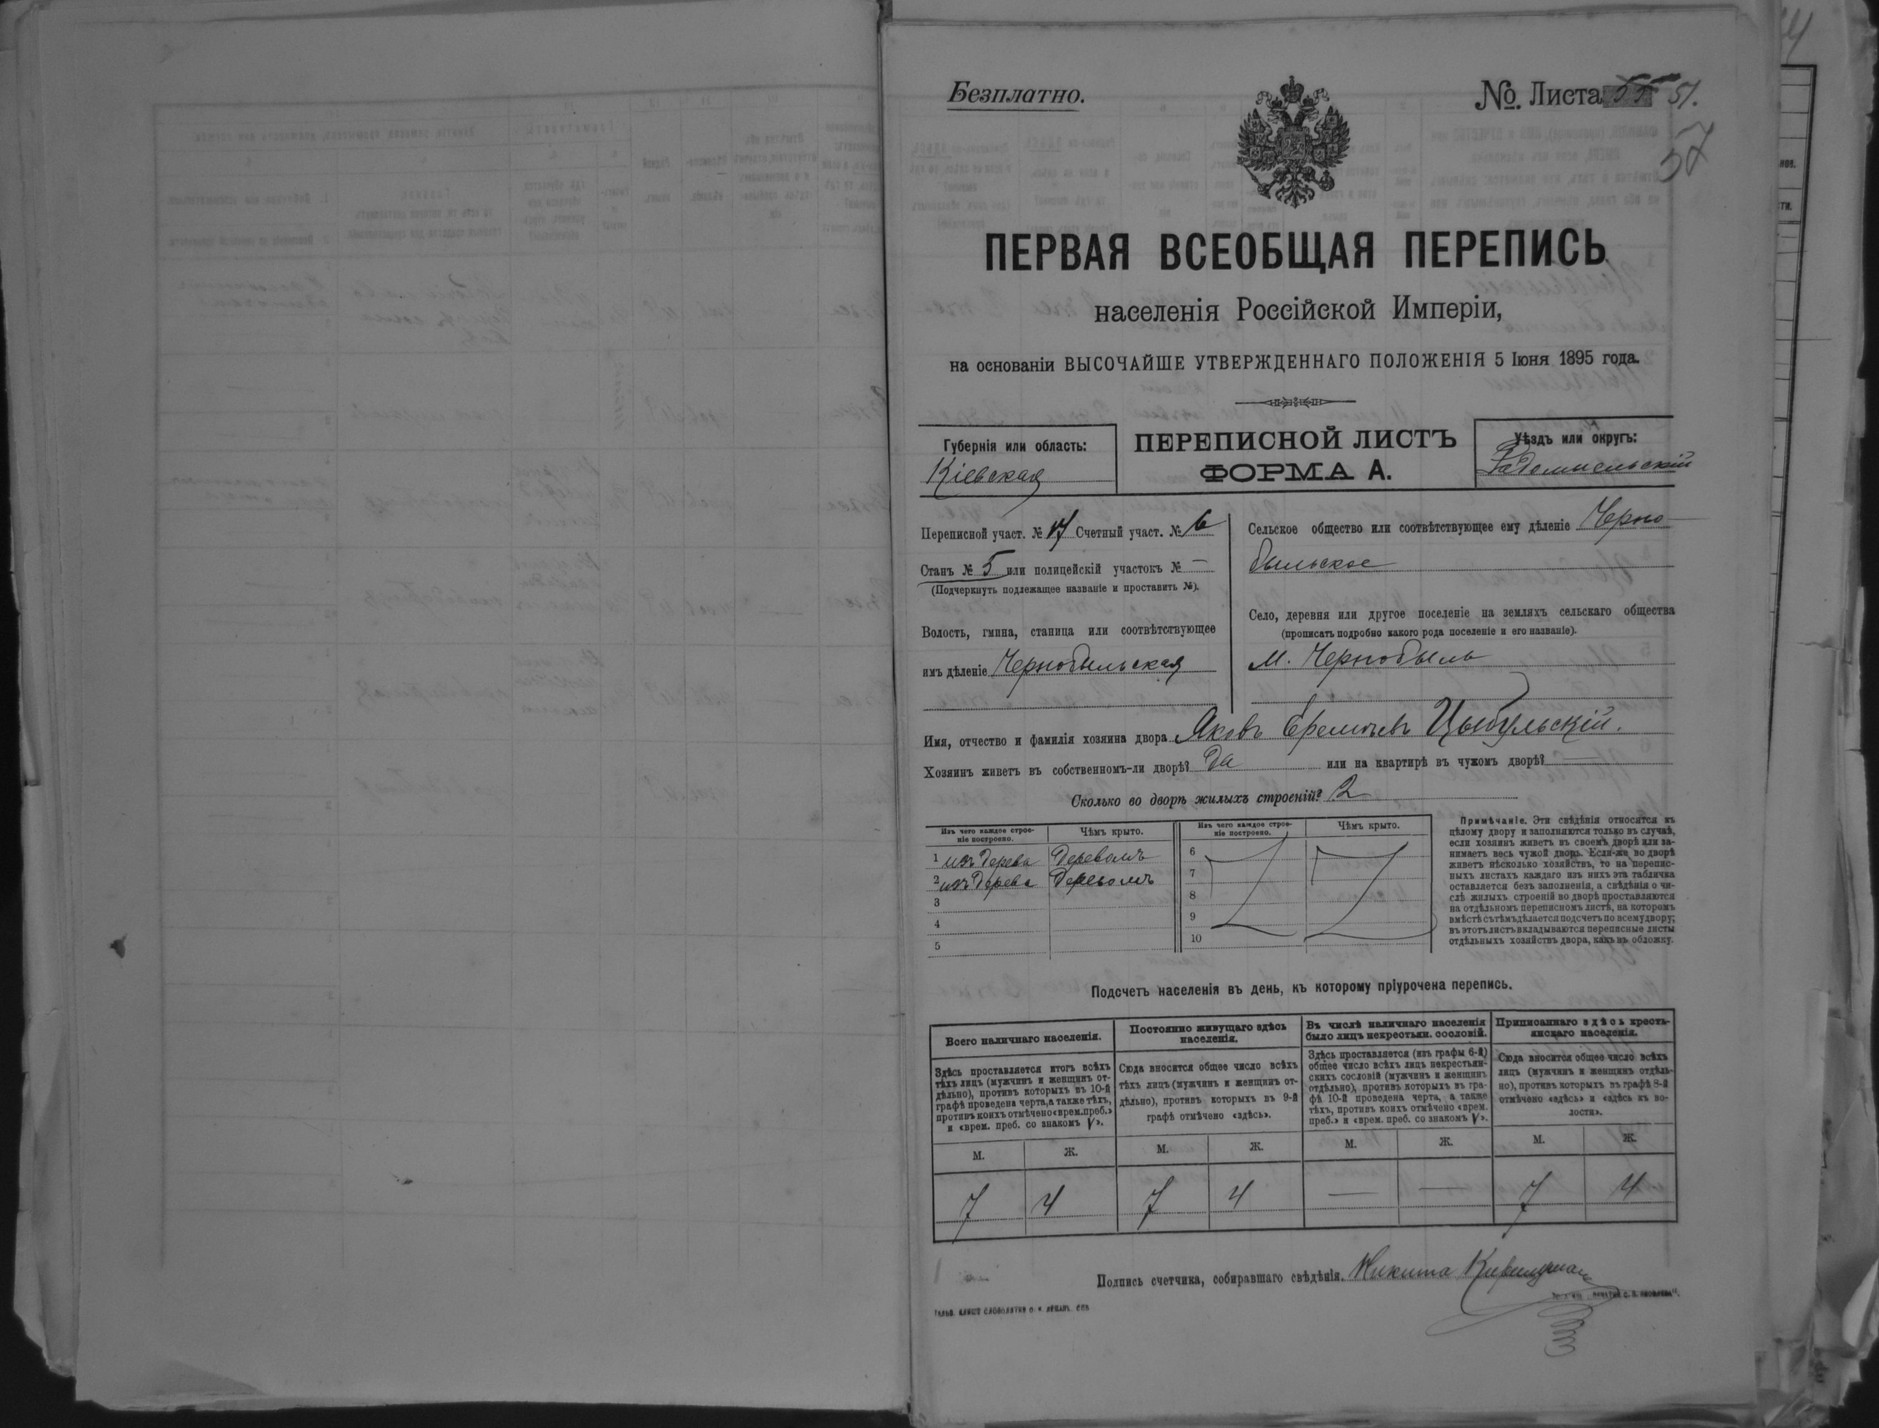 Безплатно.
№ Листа 51.
57
ПЕРВАЯ ВСЕОБЩАЯ ПЕРЕПИСЬ
населенія Россійской Имперіи,
на основаніи ВЫСОЧАЙШЕ УТВЕРЖДЕННАГО ПОЛОЖЕНІЯ 5 Іюня 1895 года.
Губернія или область:
Кіевская
ПЕРЕПИСНОЙ ЛИСТЪ
ФОРМА А.
Уѣздъ или округъ:
Радомысльскій
Переписной участ. № 17 Счетный участ. № 6
Станъ № 5 или полицейскій участокъ № —
(Подчеркнуть подлежащее названіе и проставить №).
Волость, гмина, станица или соотвѣтствующее
имъ дѣленіе Чернобыльская
Сельское общество или соотвѣтствующее ему дѣленіе Черно-
быльское
Село, деревня или другое поселеніе на земляхъ сельскаго общества
(прописать подробно какого рода поселеніе и его названіе).
М. Чернобыль
Имя, отчество и фамилія хозяина двора Яковъ Еремѣевъ Цыбульскій.
Хозяинъ живетъ въ собственномъ-ли дворѣ? Да или на квартирѣ въ чужомъ дворѣ? —
Сколько во дворѣ жилыхъ строеній? 2
Изъ чего каждое строе-
ніе построено.
Чѣмъ крыто.
Изъ чего каждое строе-
ніе построено.
Чѣмъ крыто.
1 изъ дерева Деревомъ
2 изъ дерева Деревомъ
3
4
5
6
7
8
9
10
Примѣчаніе. Эти свѣдѣнія относятся къ
цѣлому двору и заполняются только въ случаѣ,
если хозяинъ живетъ въ своемъ дворѣ или за-
нимаетъ весь чужой дворъ. Если-же во дворѣ
живетъ нѣсколько хозяйствъ, то на перепис-
ныхъ листахъ каждаго изъ нихъ эта табличка
оставляется безъ заполненія, а свѣдѣнія о чи-
слѣ жилыхъ строеній во дворѣ проставляются
на отдѣльномъ переписномъ листѣ, на которомъ
вмѣстѣ съ тѣмъ дѣлается подсчетъ по всему двору;
въ этотъ листъ вкладываются переписные листы
отдѣльныхъ хозяйствъ двора, какъ въ обложку.
Подсчетъ населенія въ день, къ которому пріурочена перепись.
Всего наличнаго населенія.
Здѣсь проставляется итогъ всѣхъ
тѣхъ лицъ (мужчинъ и женщинъ от-
дѣльно), противъ которыхъ въ 10-й
графѣ проведена черта, а также тѣхъ,
противъ коихъ отмѣчено «врем. преб.»
и «врем. преб. со знакомъ V».
Постоянно живущаго здѣсь
населенія.
Сюда вносится общее число всѣхъ
тѣхъ лицъ (мужчинъ и женщинъ от-
дѣльно), противъ которыхъ въ 9-й
графѣ отмѣчено «здѣсь».
Въ числѣ наличнаго населенія
было лицъ некрестьян. сословій.
Здѣсь проставляется (изъ графы 6-й)
общее число всѣхъ лицъ некрестьян-
скихъ сословій (мужчинъ и женщинъ
отдѣльно), противъ которыхъ въ гра-
фѣ 10-й проведена черта, а также
тѣхъ, противъ коихъ отмѣчено «врем.
преб.» и «врем. преб. со знакомъ V».
Приписаннаго здѣсь кресть-
янскаго населенія.
Сюда вносится общее число всѣхъ
лицъ (мужчинъ и женщинъ отдѣль-
но), противъ которыхъ въ графѣ 8-й
отмѣчено «здѣсь» и «здѣсь къ во-
лости».
М. Ж. М. Ж. М. Ж. М. Ж.
7 4 7 4 — — 7 4
Подпись счетчика, собиравшаго свѣдѣнія. Никита